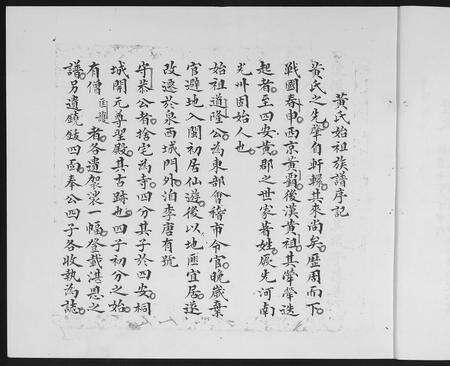 黃氏始祖族譜序記
黃氏之先肇自軒轅其來尚矣歷周而下
戰國春申西京黃霸後漢黃祖其犖犖迭
起者至四安黃郡之世家著姓厥先河南
光州固始人也
始祖道隆公為東部會稽市令官晚歲棄
官避地入閩初居仙遊後以地匪宜居遂
改遷於泉西城門外洎李唐有號
守恭公者捨宅為寺四分其子於四安祠
城開元尊聖殿其古跡也四子初分之始
有僧匡護者各遺袈裟一幅登載湛恩之
譜另遺鐃鈸四面奉公四子各收執為誌